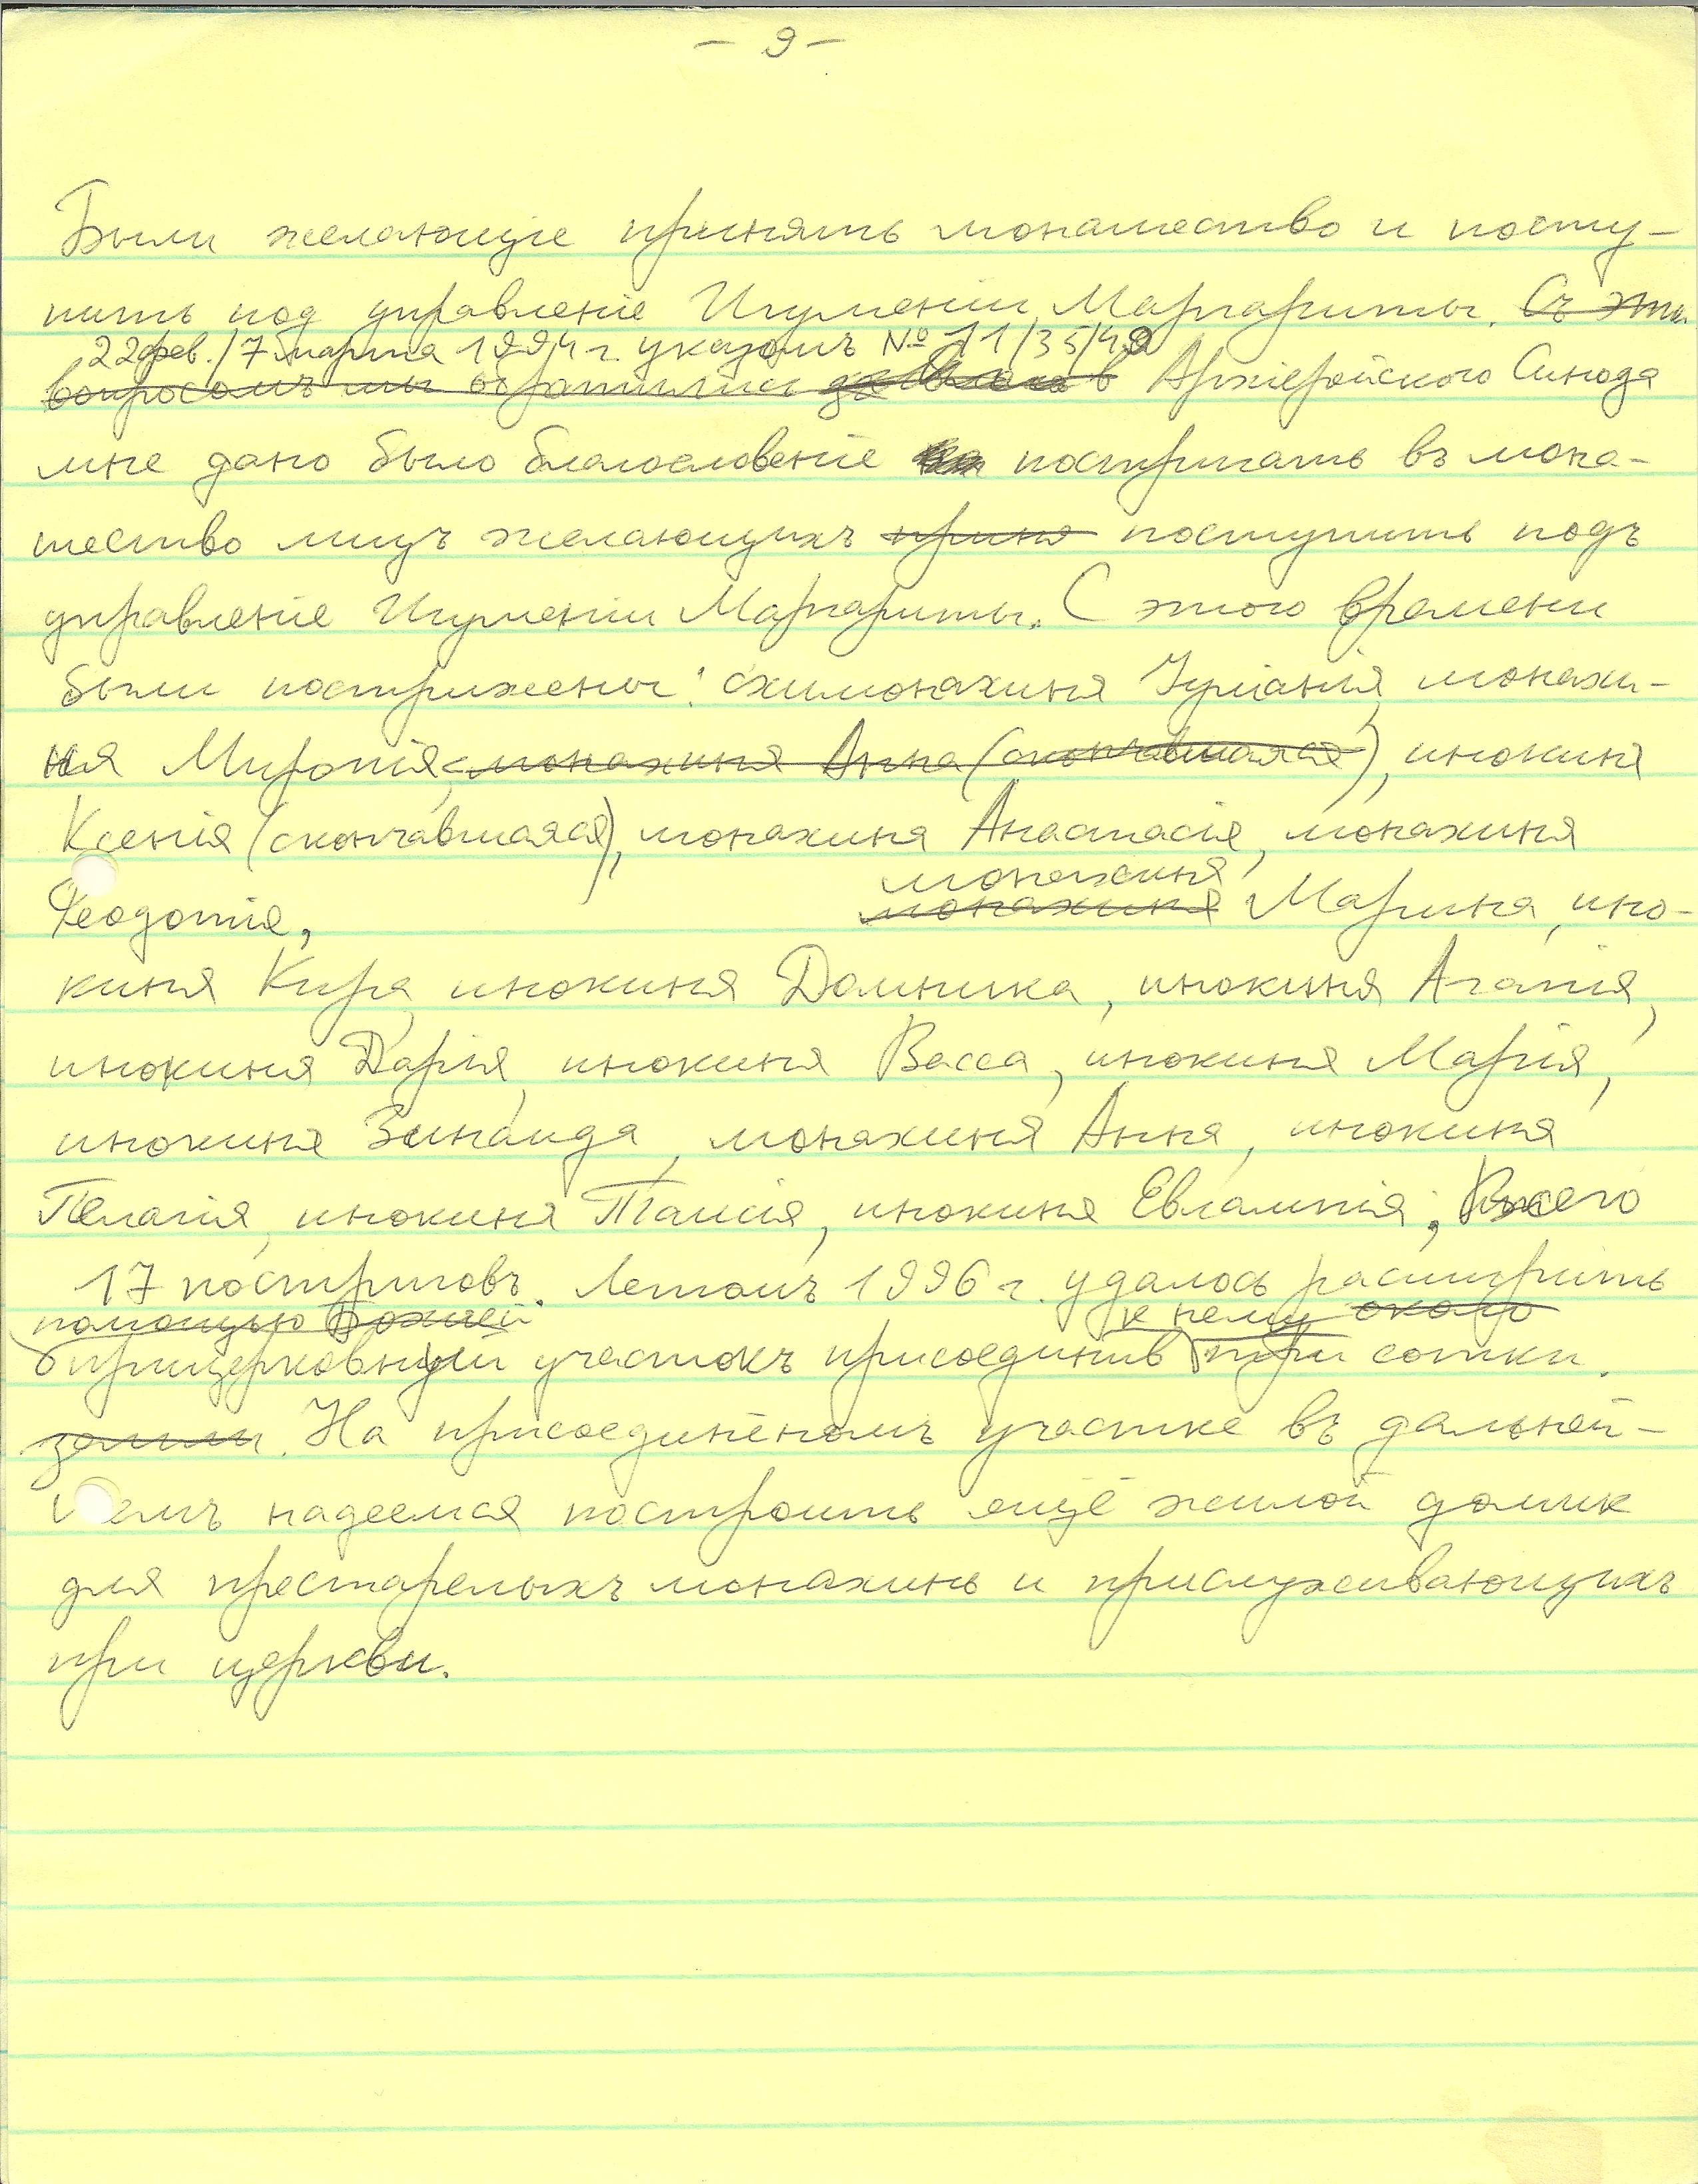 - 9 -
Были желающіе принять монашество и посту-
пить под управленіе Игуменіи Маргариты. Съ эти
22 фев./7 марта 1994 г. указомъ № 11/35/49
вопросомъ мы обратились в Архіерейского Синода
мне дано было благословеніе постригать въ мона-
шество лицъ желающихъ приня поступить подъ
управленіе Игуменіи Маргариты. С этого времени
были пострижены: схимонахиня Іуліанія, монахи-
ня Миропія, монахиня Анна (скончавшаяся), инокиня
Ксенія (скончавшаяся), монахиня Анастасія, монахиня
монахиня
Феодотія, монахиня Марина, ино-
киня Кира, инокиня Домника, инокиня Агапія,
инокиня Дарія, инокиня Васса, инокиня Марія,
инокиня Зинаида, монахиня Анна, инокиня
Пелагія, инокиня Таисія, инокиня Евлампія; Всего
17 постриговъ. Летомъ 1996 г. удалось расширить
помощью Божіей к нему около
прицерковный участокъ присоединив три сотки.
земли. На присоединёномъ участке въ дальней-
шемъ надеемся построить ещё жилой домик
для престарелыхъ монахинь и прислуживающихъ
при церкви.